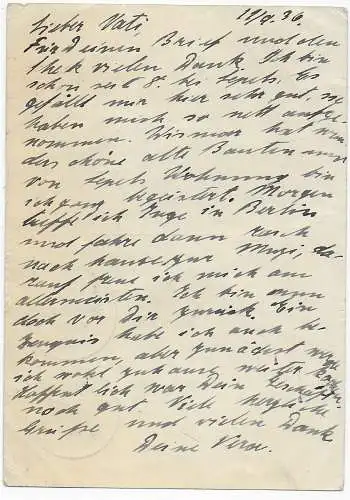 Lieber Vati, 19/9.36.
Für Deinen Brief und den
Scheck vielen Dank. Ich bin
schon seit 8. bei Sepels. Es
gefällt mir hier sehr gut, sie
haben mich so nett aufge-
nommen. Wismar hat wun
derschöne alte Bauten und
von Sepels Wohnung bin
ich ganz begeistert. Morgen
treffe ich Inge in Berlin
und fahre dann nach
nach hause zur Muzi, da-
rauf freue ich mich am
allermeisten. Ich bin
doch vor Dir zurück. Ein
Zeugnis habe ich auch be-
kommen, aber zunächst
ich wohl zuhause weiter
Hoffentlich war Dein
noch gut. Viele herzliche
Grüße und vielen Dank
Deine Vera.